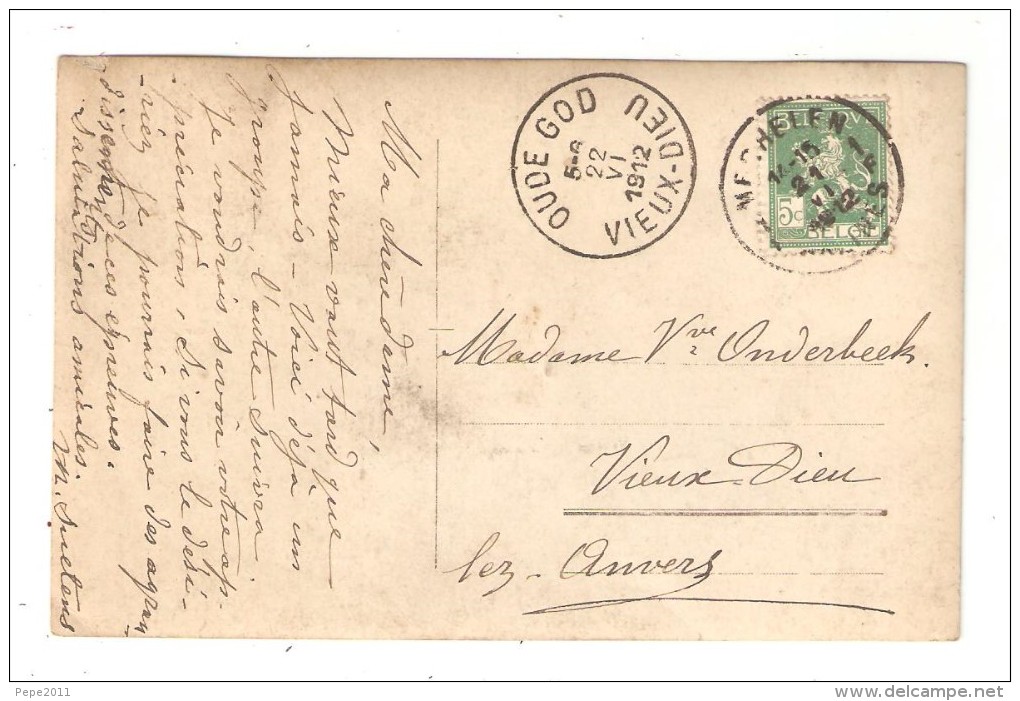 Ma chère dame
Mieux vaut tard que
jamais – Voici déjà un
groupe, l'autre suivra.
Je voudrais savoir votre ap-
préciation, si vous le dési-
-riez je pourrais faire des agran
dissements de ces épreuves.
Salutations amicales.
M. Suetens
OUDE GOD
VIEUX-DIEU
22
VI
1912
MECHELEN 1
14-15
21
VI
5c
Madame Vve Onderbeek.
Vieux-Dieu
lez-Anvers
Pepe2011
www.delcampe.net